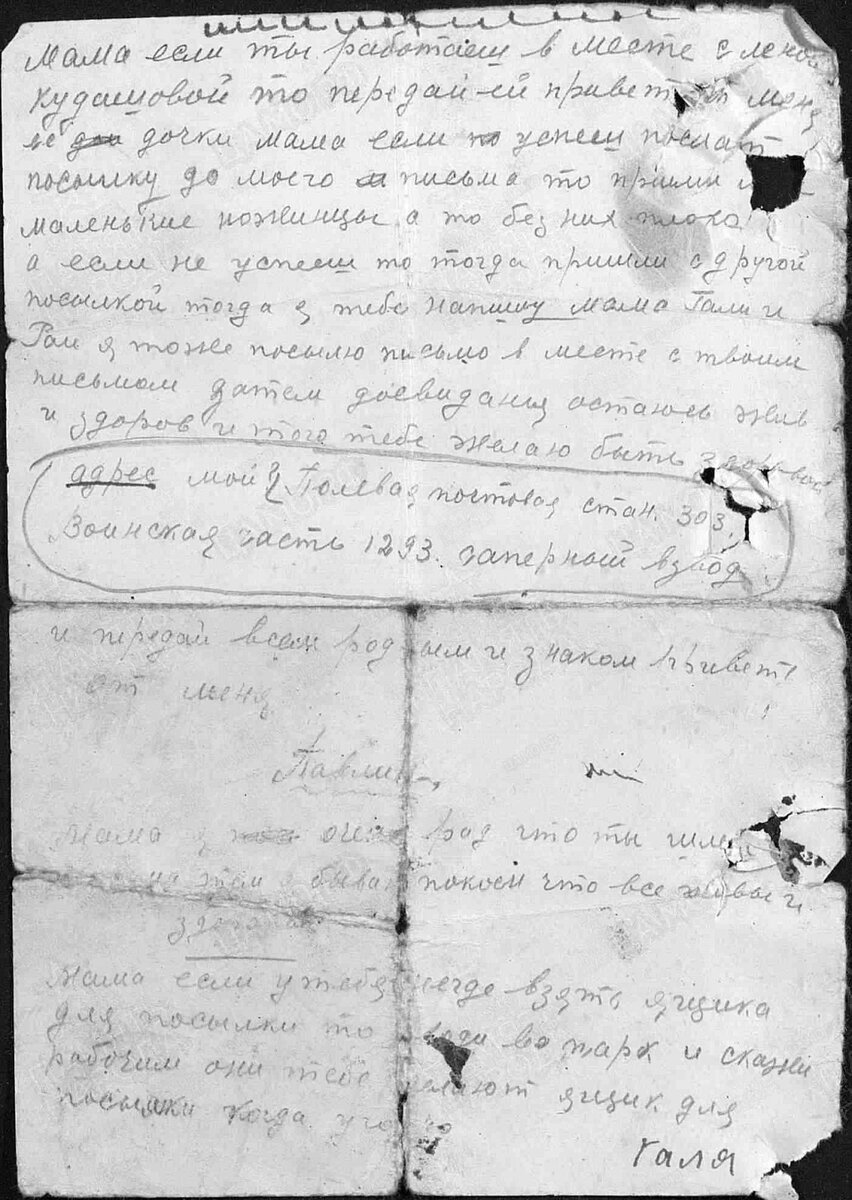 Мама если ты работаеш в месте с леной
Кудашовой то передай ей привет от меня
её дочки мама если успееш послать
посылку до моего письма то пришли
маленькие ножницы а то без них плохо
а если не успееш то тогда пришли с другой
посылкой тогда я тебе напишу мама Гали и
Раи я тоже посылю письмо в месте с твоим
письмом затем досвидания остаюсь жив
и здоров и того тебе желаю быть здоровой
адрес мой Полевая почтовая стан. 303,
Воинская часть 1293. саперный взвод
и передай всем родным и знаком привет
от меня
Павлик
Мама я очень рад что ты
что все живы и
Мама если у тебя негде взять ящика
для посылки то во парк и скажи
рабочим они тебе сделают ящик для
посылки когда
Галя